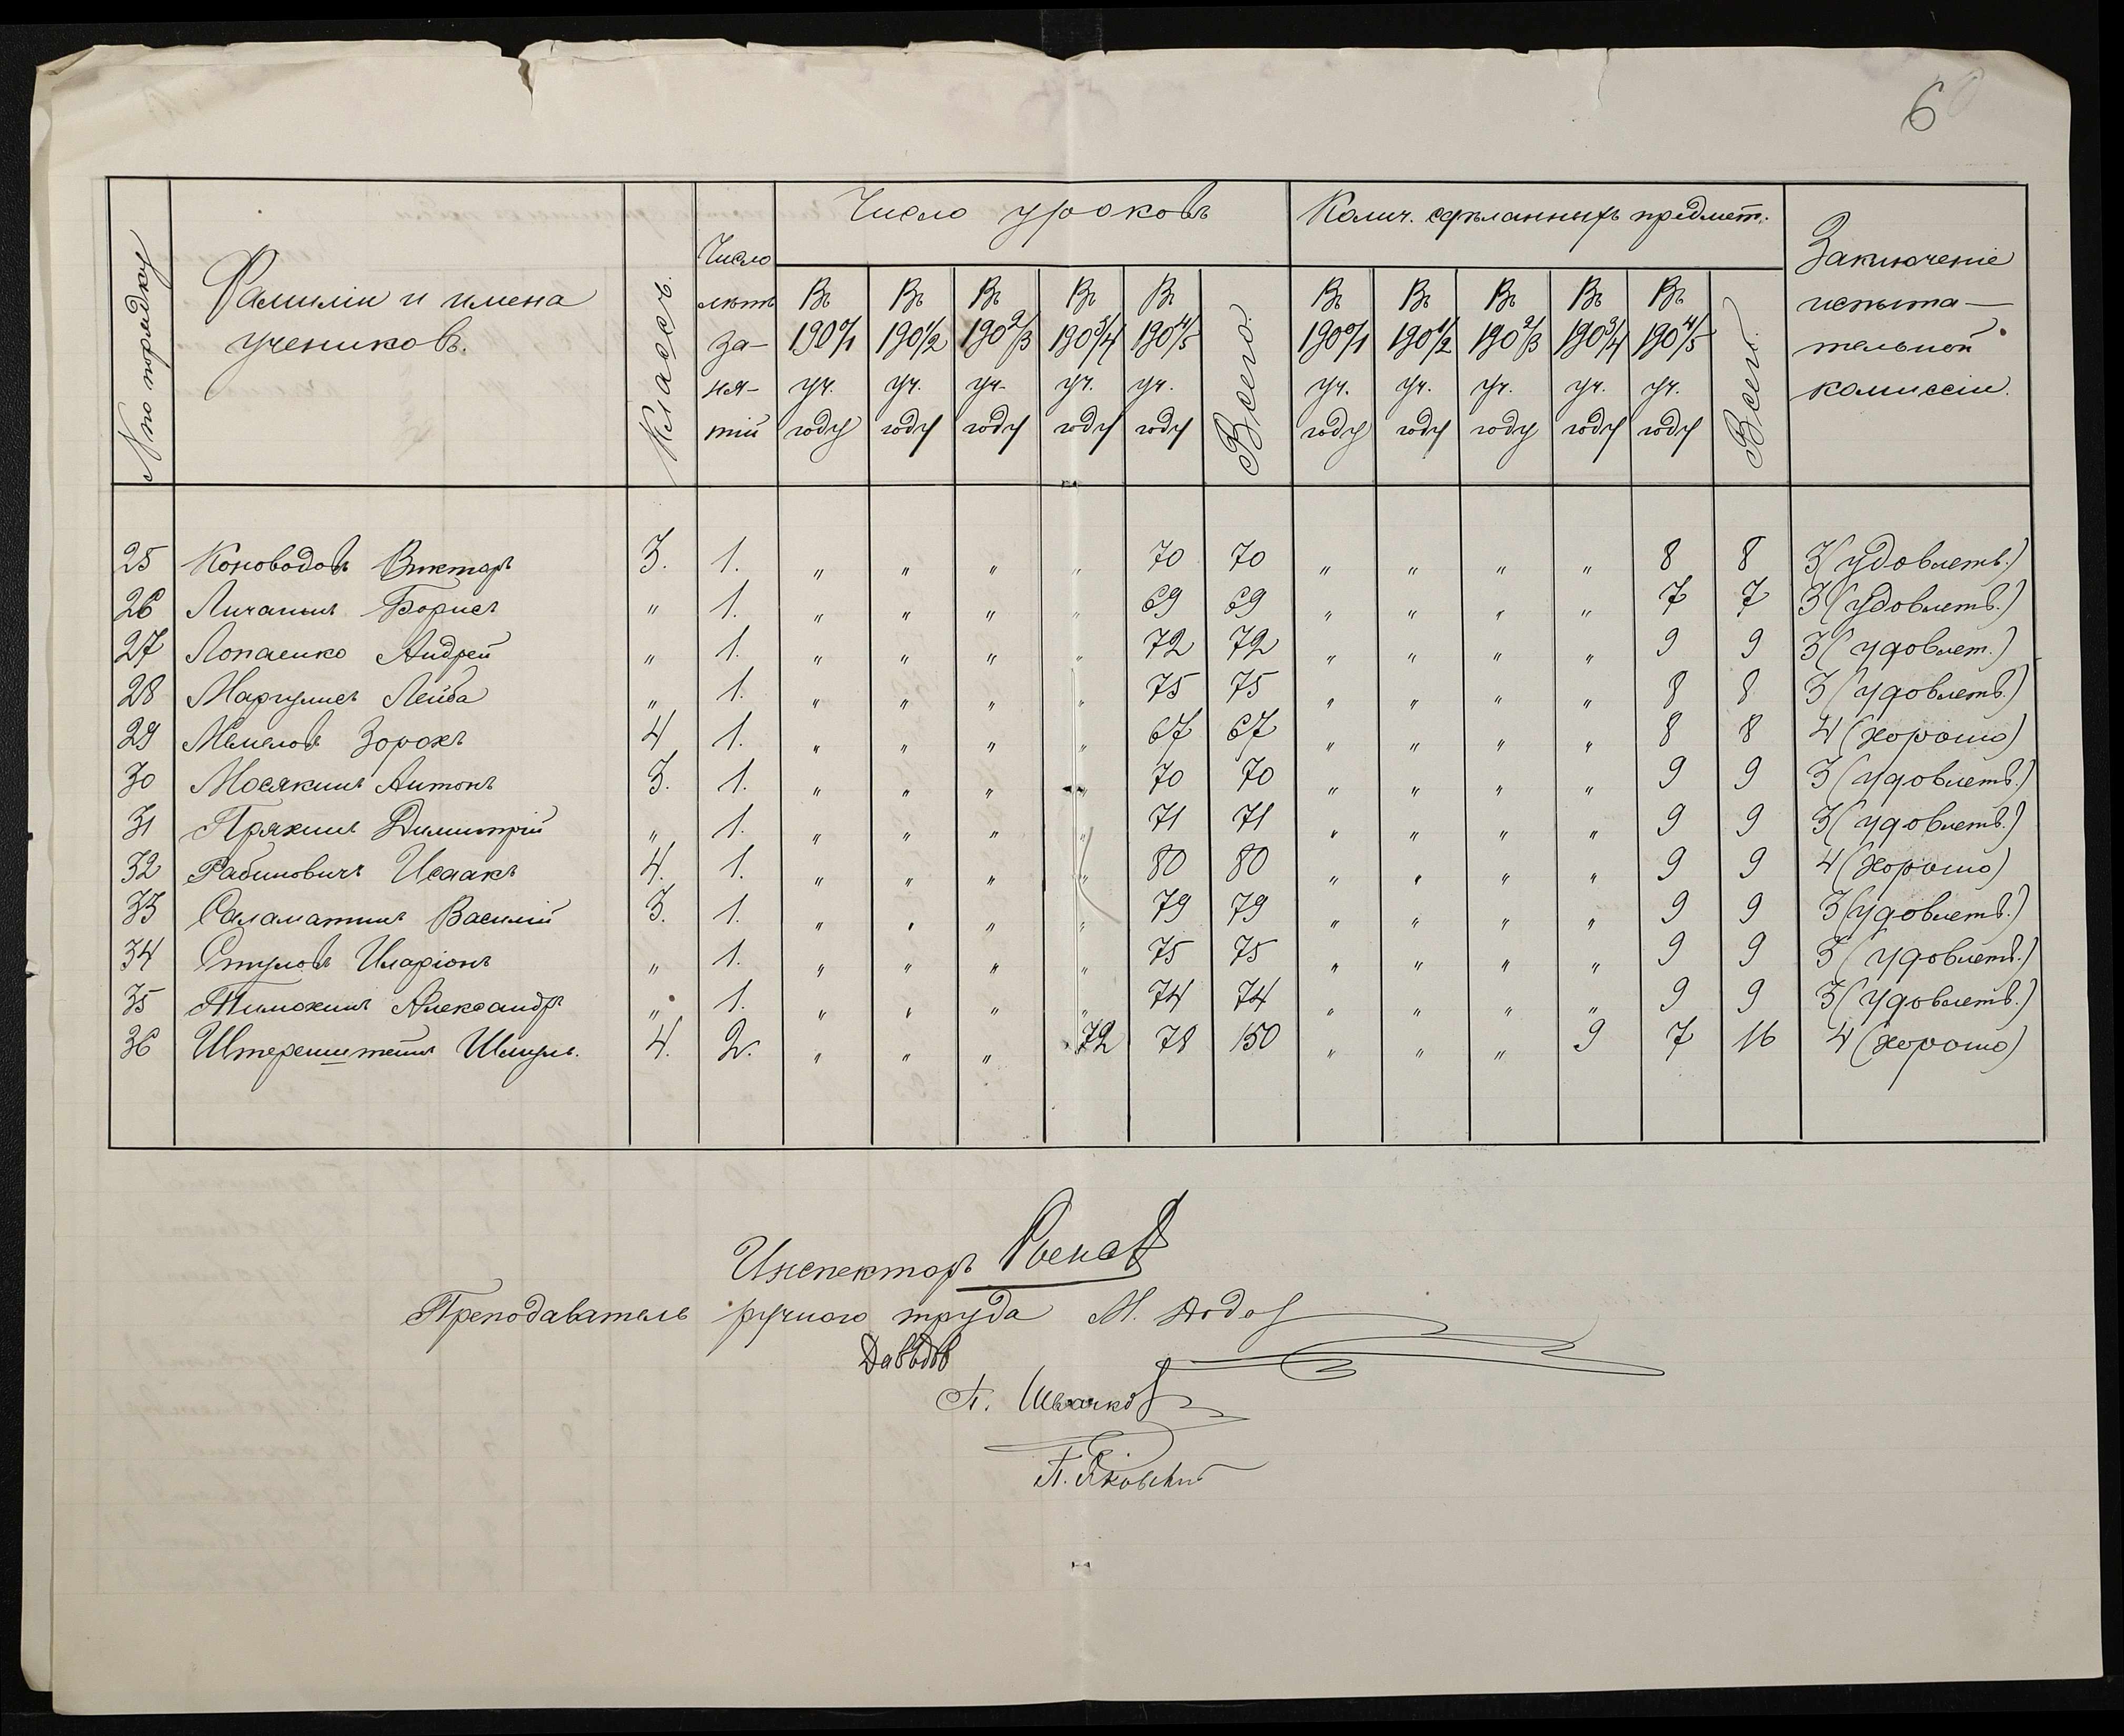 6
№ по порядку
Фамилiи и имена учениковъ.
Классъ.
Число лѣтъ за-ня-тiй
Число уроковъ
Въ 1900/1 уч. году
Въ 1901/2 уч. году
Въ 1902/3 уч. году
Въ 1903/4 уч. году
Въ 1904/5 уч. году
Всего.
Колич. сдѣланныхъ предмет.
Въ 1900/1 уч. году
Въ 1901/2 уч. году
Въ 1902/3 уч. году
Въ 1903/4 уч. году
Въ 1904/5 уч. году
Всего.
Заключенiе испыта-тельной комиссiи.
25 Коноводовъ Викторъ 3. 1. " " " " 70 70 " " " " 8 8 3 (удовлетв.)
26 Личанинъ Борисъ " 1. " " " " 69 69 " " " " 7 7 3 (удовлетв.)
27 Лопаенко Андрей " 1. " " " " 72 72 " " " " 9 9 3 (удовлет.)
28 Маргулисъ Лейба " 1. " " " " 75 75 " " " " 8 8 3 (удовлетв.)
29 Зорохъ 4 1. " " " " 67 67 " " " " 8 8 4 (хорошо)
30 Мосякинъ Антонъ 3. 1. " " " " 70 70 " " " " 9 9 3 (удовлетв.)
31 Пряхинъ Димитрiй " 1. " " " " 71 71 " " " " 9 9 3 (удовлетв.)
32 Рабиновичъ Исаакъ 4. 1. " " " " 80 80 " " " " 9 9 4 (хорошо)
33 Саламатинъ Василiй 3. 1. " " " " 79 79 " " " " 9 9 3 (удовлетв.)
34 Стуловъ Иларiонъ " 1. " " " " 75 75 " " " " 9 9 3 (удовлетв.)
35 Тимохинъ Александръ " 1. " " " " 74 74 " " " " 9 9 3 (удовлетв.)
36 Штеренштейнъ Шмуль. 4. 2. " " " 72 78 150 " " " 9 7 16 4 (хорошо)
Инспекторъ
Преподаватель ручного труда М.
Давыдов
А. Швачков
П. Яковкин